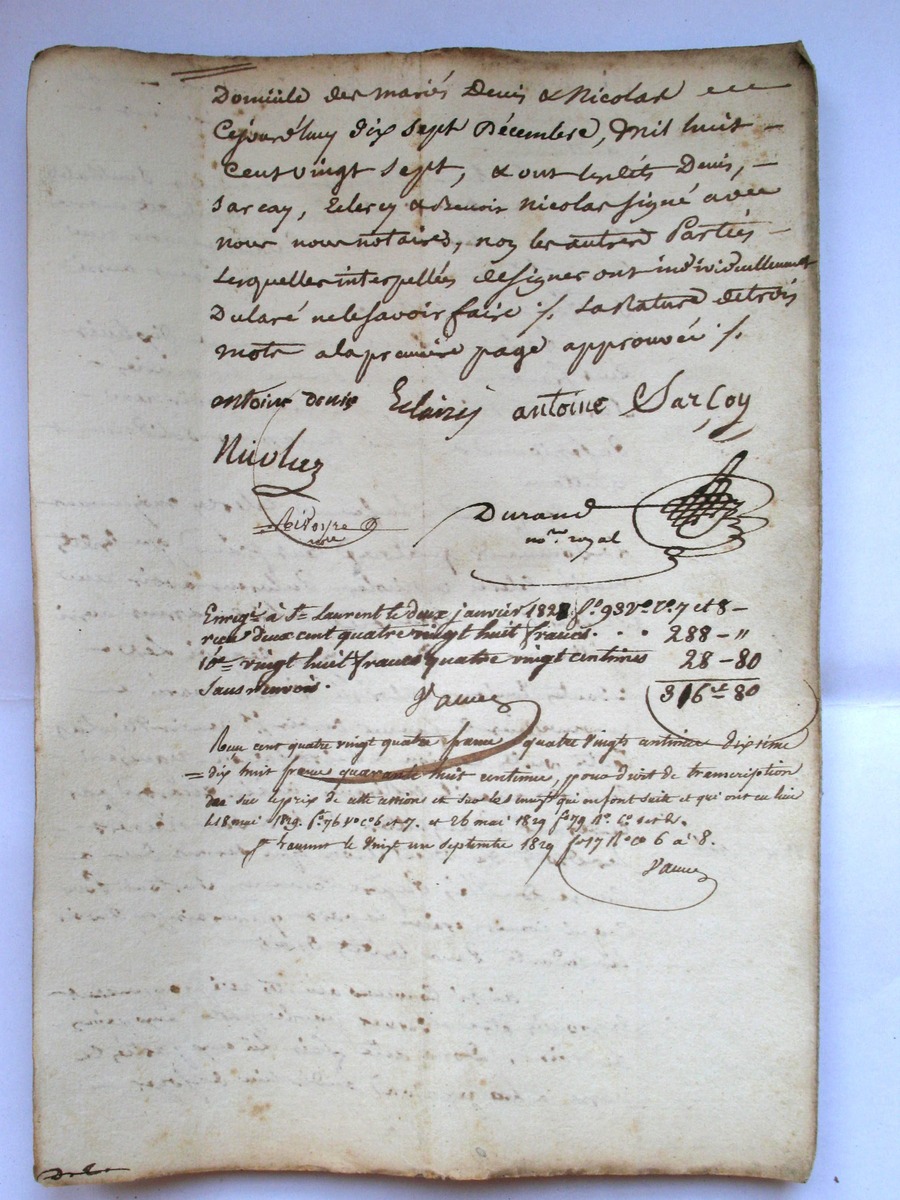 Domicile des mariés Denis & Nicolas
Cejourd'huy dix sept Décembre, mil huit
Cent vingt sept, & ont lesdits Denis,
Sarcay, Eclercy & Benoir Nicolas signé avec
nous nous notaires, non les autres Parties
Lesquelles interpellées de signer ont individuellement
Declaré ne le savoir faire ./. La Rature de trois
mots a la premiere page approuvée ./.
antoine denis Eclairsy antoine Sarcoy
Nicolas
Durand
nore royal
nore
Enregé à St Laurent le deux janvier 1828 fo 93 vo Co 7 et 8
reçu deux cent quatre vingt huit francs. 288 - "
10e vingt huit francs quatre vingt centimes 28 - 80
sans renvois. 316 ct 80
Reçu cent quatre vingt quatre francs quatre vingts centimes dixième
dix huit francs quarante huit centimes, pour droit de transcription
sur le prix de cette et sur les qui en font suite et qui ont eu lieu
18 mai 1829. fo 76 Vo Co 6 et 7. et 26 mai 1829 fo 79 Ro. Co 1 et 2.
St Laurent le vingt un septembre 1829 fo 17 Ro Co 6 à 8.